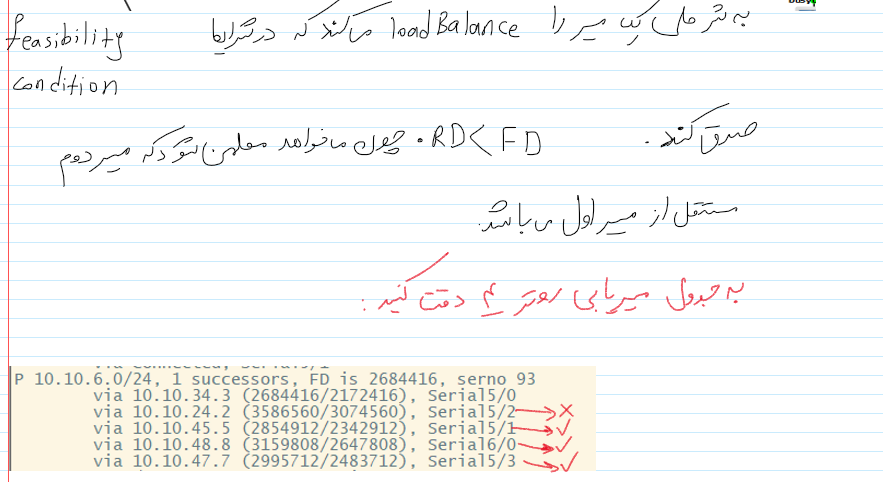 به شرطی یک مسیر را loadBalance میکند که در شرایط feasibility
condition
صدق کند. RD < FD. چون میخواهد مطمئن شود که مسیر دوم
مستقل از مسیر اول می باشد.
به جدول مسیریابی روتر ۴ دقت کنید:
P 10.10.6.0/24, 1 successors, FD is 2684416, serno 93
via 10.10.34.3 (2684416/2172416), Serial5/0
via 10.10.24.2 (3586560/3074560), Serial5/2 → ×
via 10.10.45.5 (2854912/2342912), Serial5/1 → ✓
via 10.10.48.8 (3159808/2647808), Serial6/0 → ✓
via 10.10.47.7 (2995712/2483712), Serial5/3 → ✓